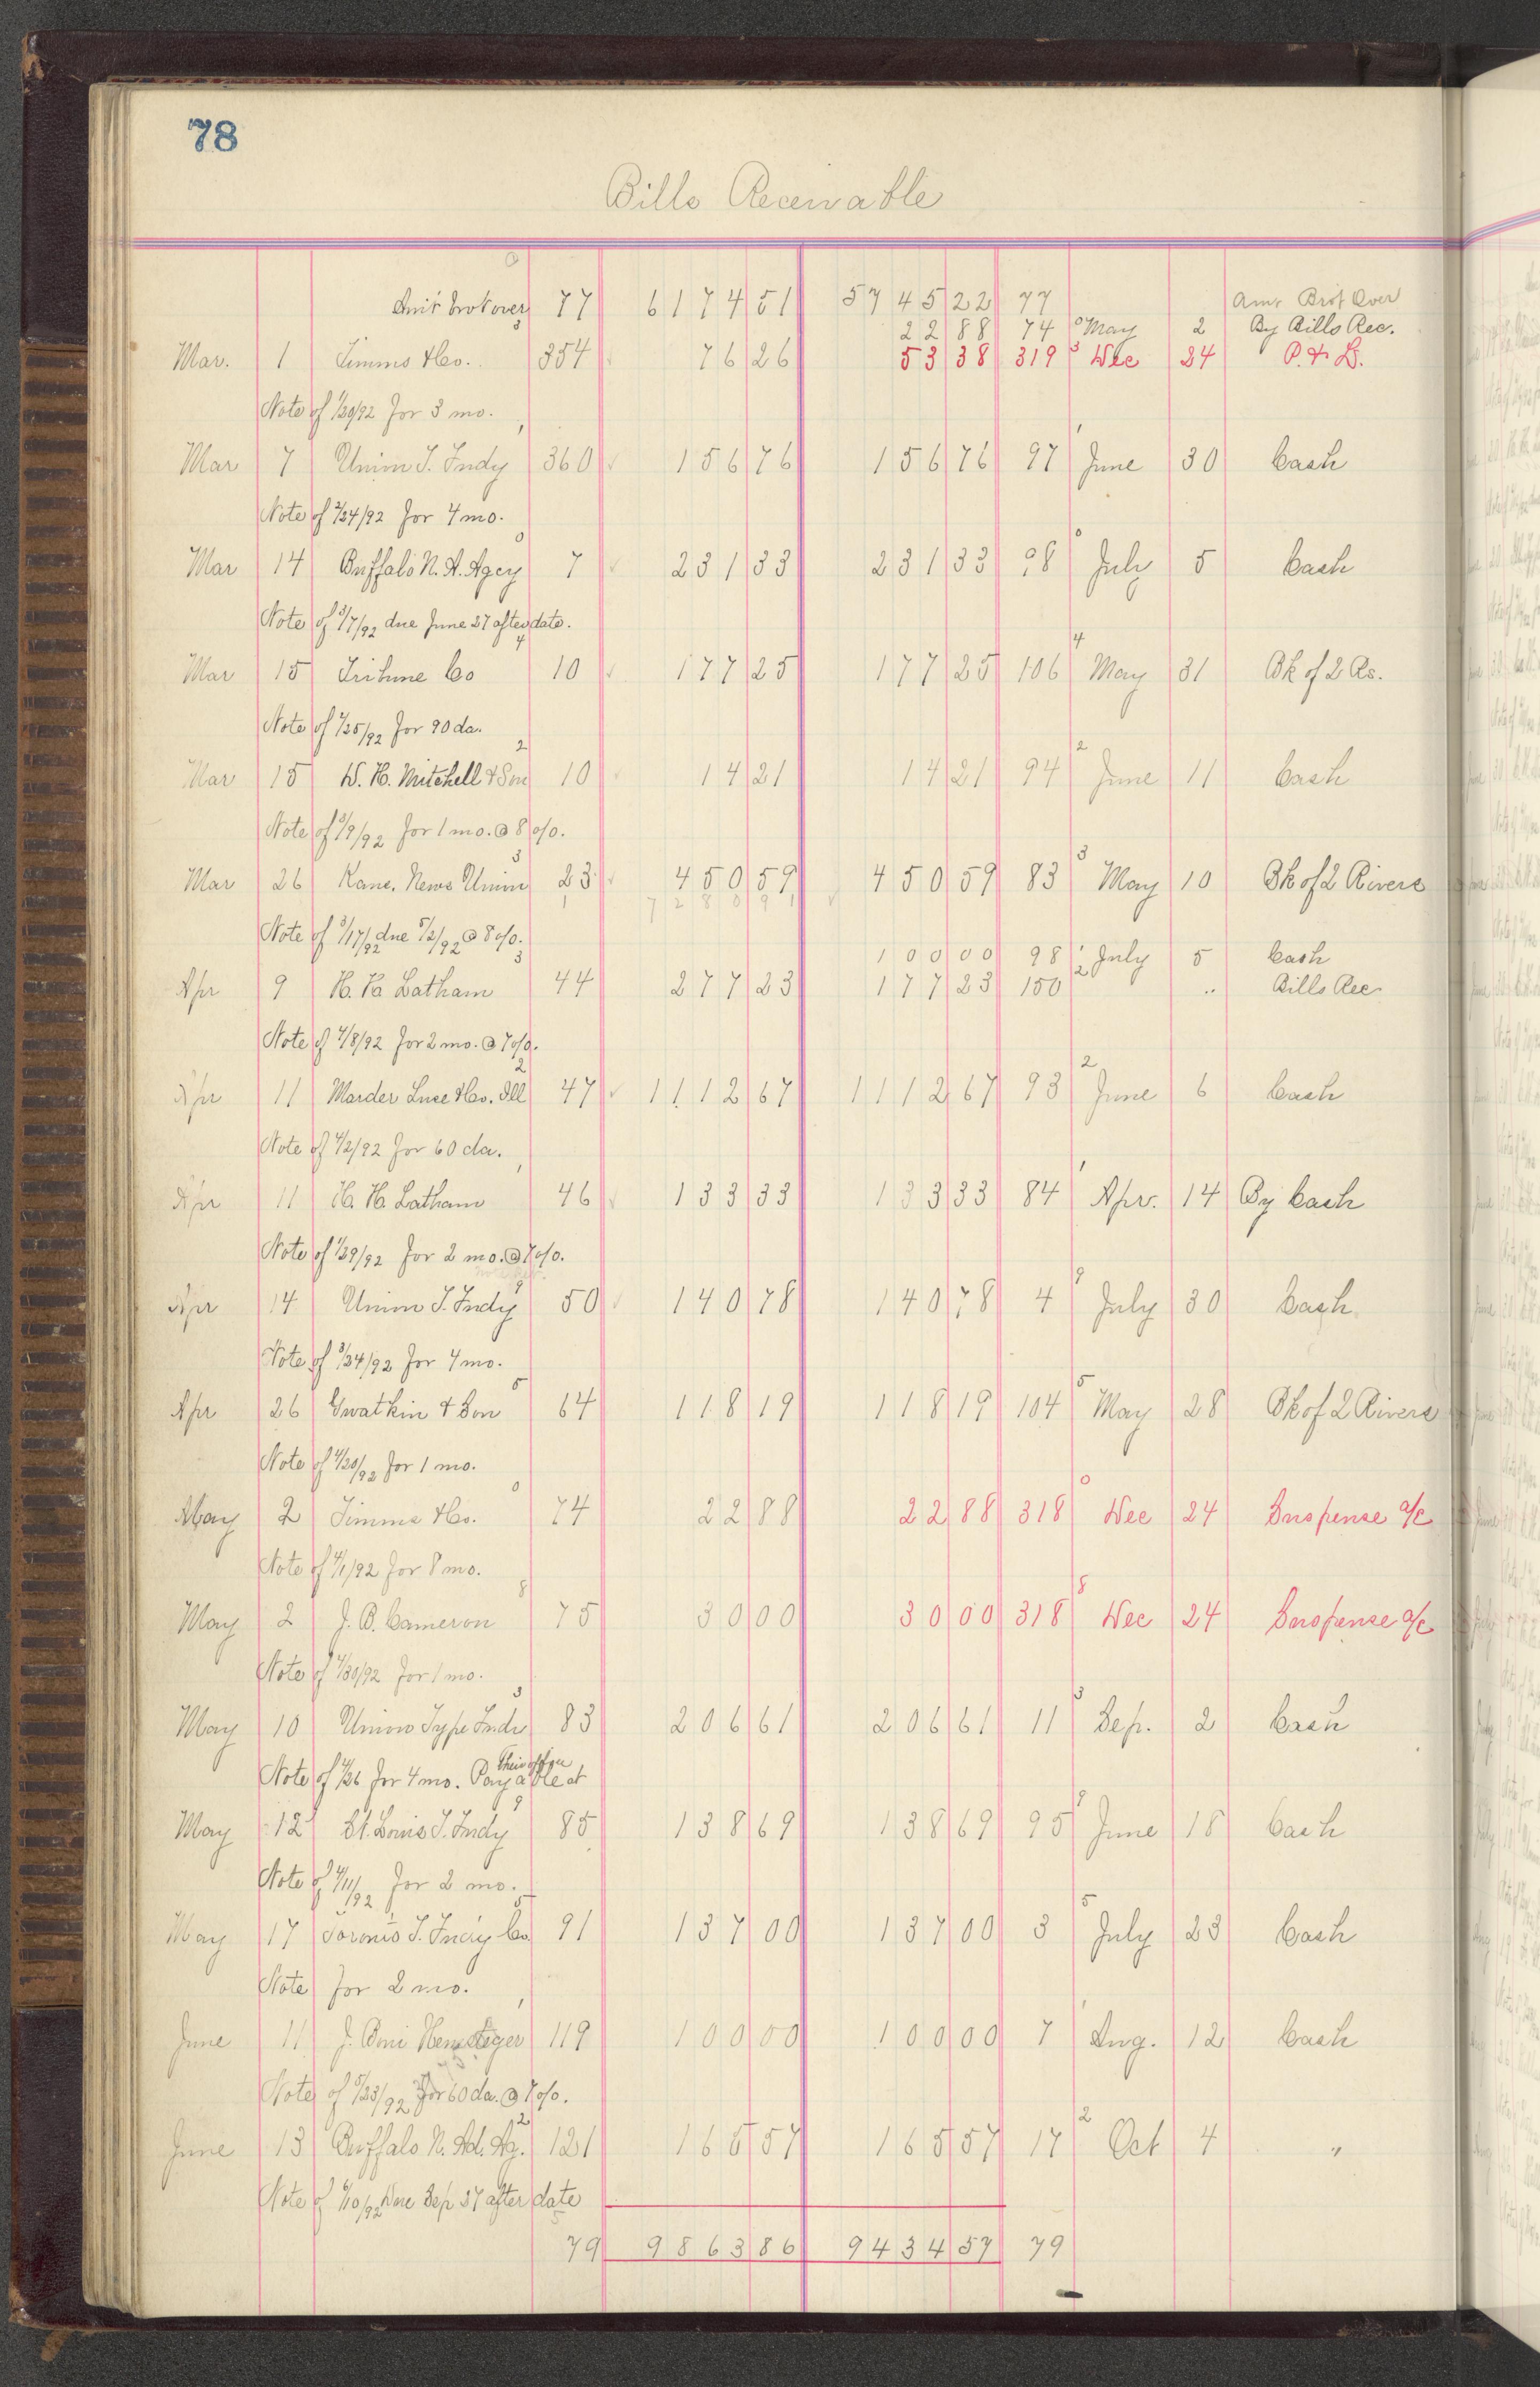 78
Bills Receivable
Amt Brot over 77 6174 51 5745 22 77 Amt Brot Over
22 88 74 May 2 By Bills Rec.
Mar. 1 Simms & Co. 354 76 26 53 38 319 Dec 24 P. & L.
Note of 1/30/92 for 3 mo.
Mar 7 Union T. Fndy 360 156 76 156 76 97 June 30 Cash
Note of 2/24/92 for 4 mo.
Mar 14 Buffalo N. A. Agcy 7 231 33 231 33 98 July 5 Cash
Note of 3/7/92 due June 27 after date.
Mar 15 Tribune Co 10 177 25 177 25 106 May 31 Bk of 2 Rs.
Note of 1/25/92 for 90 da.
Mar 15 W. H. Mitchell & Son 10 14 21 14 21 94 June 11 Cash
Note of 3/9/92 for 1 mo. @ 8 o/o.
Mar 26 Kans. News Union 23 450 59 450 59 83 May 10 Bk of 2 Rivers
7280 91
Note of 3/17/92 due 5/2/92 @ 8 o/o.
100 00 98 July 5 Cash
Apr 9 H. H. Latham 44 277 23 177 23 150 .. Bills Rec.
Note of 4/8/92 for 2 mo. @ 7 o/o.
Apr 11 Marder Luse & Co. Ill 47 1112 67 1112 67 93 June 6 Cash
Note of 4/2/92 for 60 da.
Apr 11 H. H. Latham 46 133 33 133 33 84 Apr. 14 By Cash
Note of 1/29/92 for 2 mo. @ 7 o/o.
Apr 14 Union T. Fndy 50 140 78 140 78 4 July 30 Cash
Note of 3/24/92 for 4 mo.
Apr 26 Gwatkin & Son 64 118 19 118 19 104 May 28 Bk of 2 Rivers
Note of 4/20/92 for 1 mo.
May 2 Simms & Co. 74 22 88 22 88 318 Dec 24 Suspense a/c
Note of 4/1/92 for 8 mo.
May 2 J. B. Cameron 75 30 00 30 00 318 Dec 24 Suspense a/c
Note of 4/30/92 for 1 mo.
May 10 Union Type Fndr 83 206 61 206 61 11 Sep. 2 Cash
their office
Note of 4/26 for 4 mo. Payable at
May 12 St. Louis T. Fndy 85 138 69 138 69 95 June 18 Cash
Note of 4/11/92 for 2 mo.
May 17 Toronto T. Fndry Co 91 137 00 137 00 3 July 23 Cash
Note for 2 mo.
June 11 J. 119 100 00 100 00 7 Aug. 12 Cash
Note of 5/23/92 for 60 da. @ 7 o/o.
June 13 Buffalo N. Ad. Ag. 121 165 57 165 57 17 Oct 4 "
Note of 6/10/92 Due Sep 27 after date
79 9863 86 9434 57 79